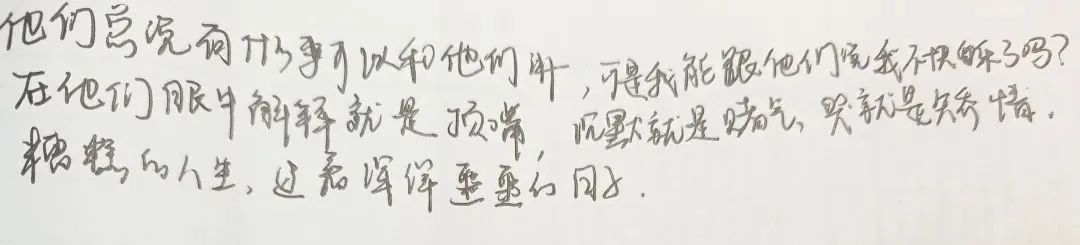 他们总说有什么事可以和他们讲，可是我能跟他们说我不快乐了吗？
在他们眼中解释就是顶嘴，沉默就是赌气、哭就是矫情.
糟糕的人生、过着浑浑噩噩的日子.